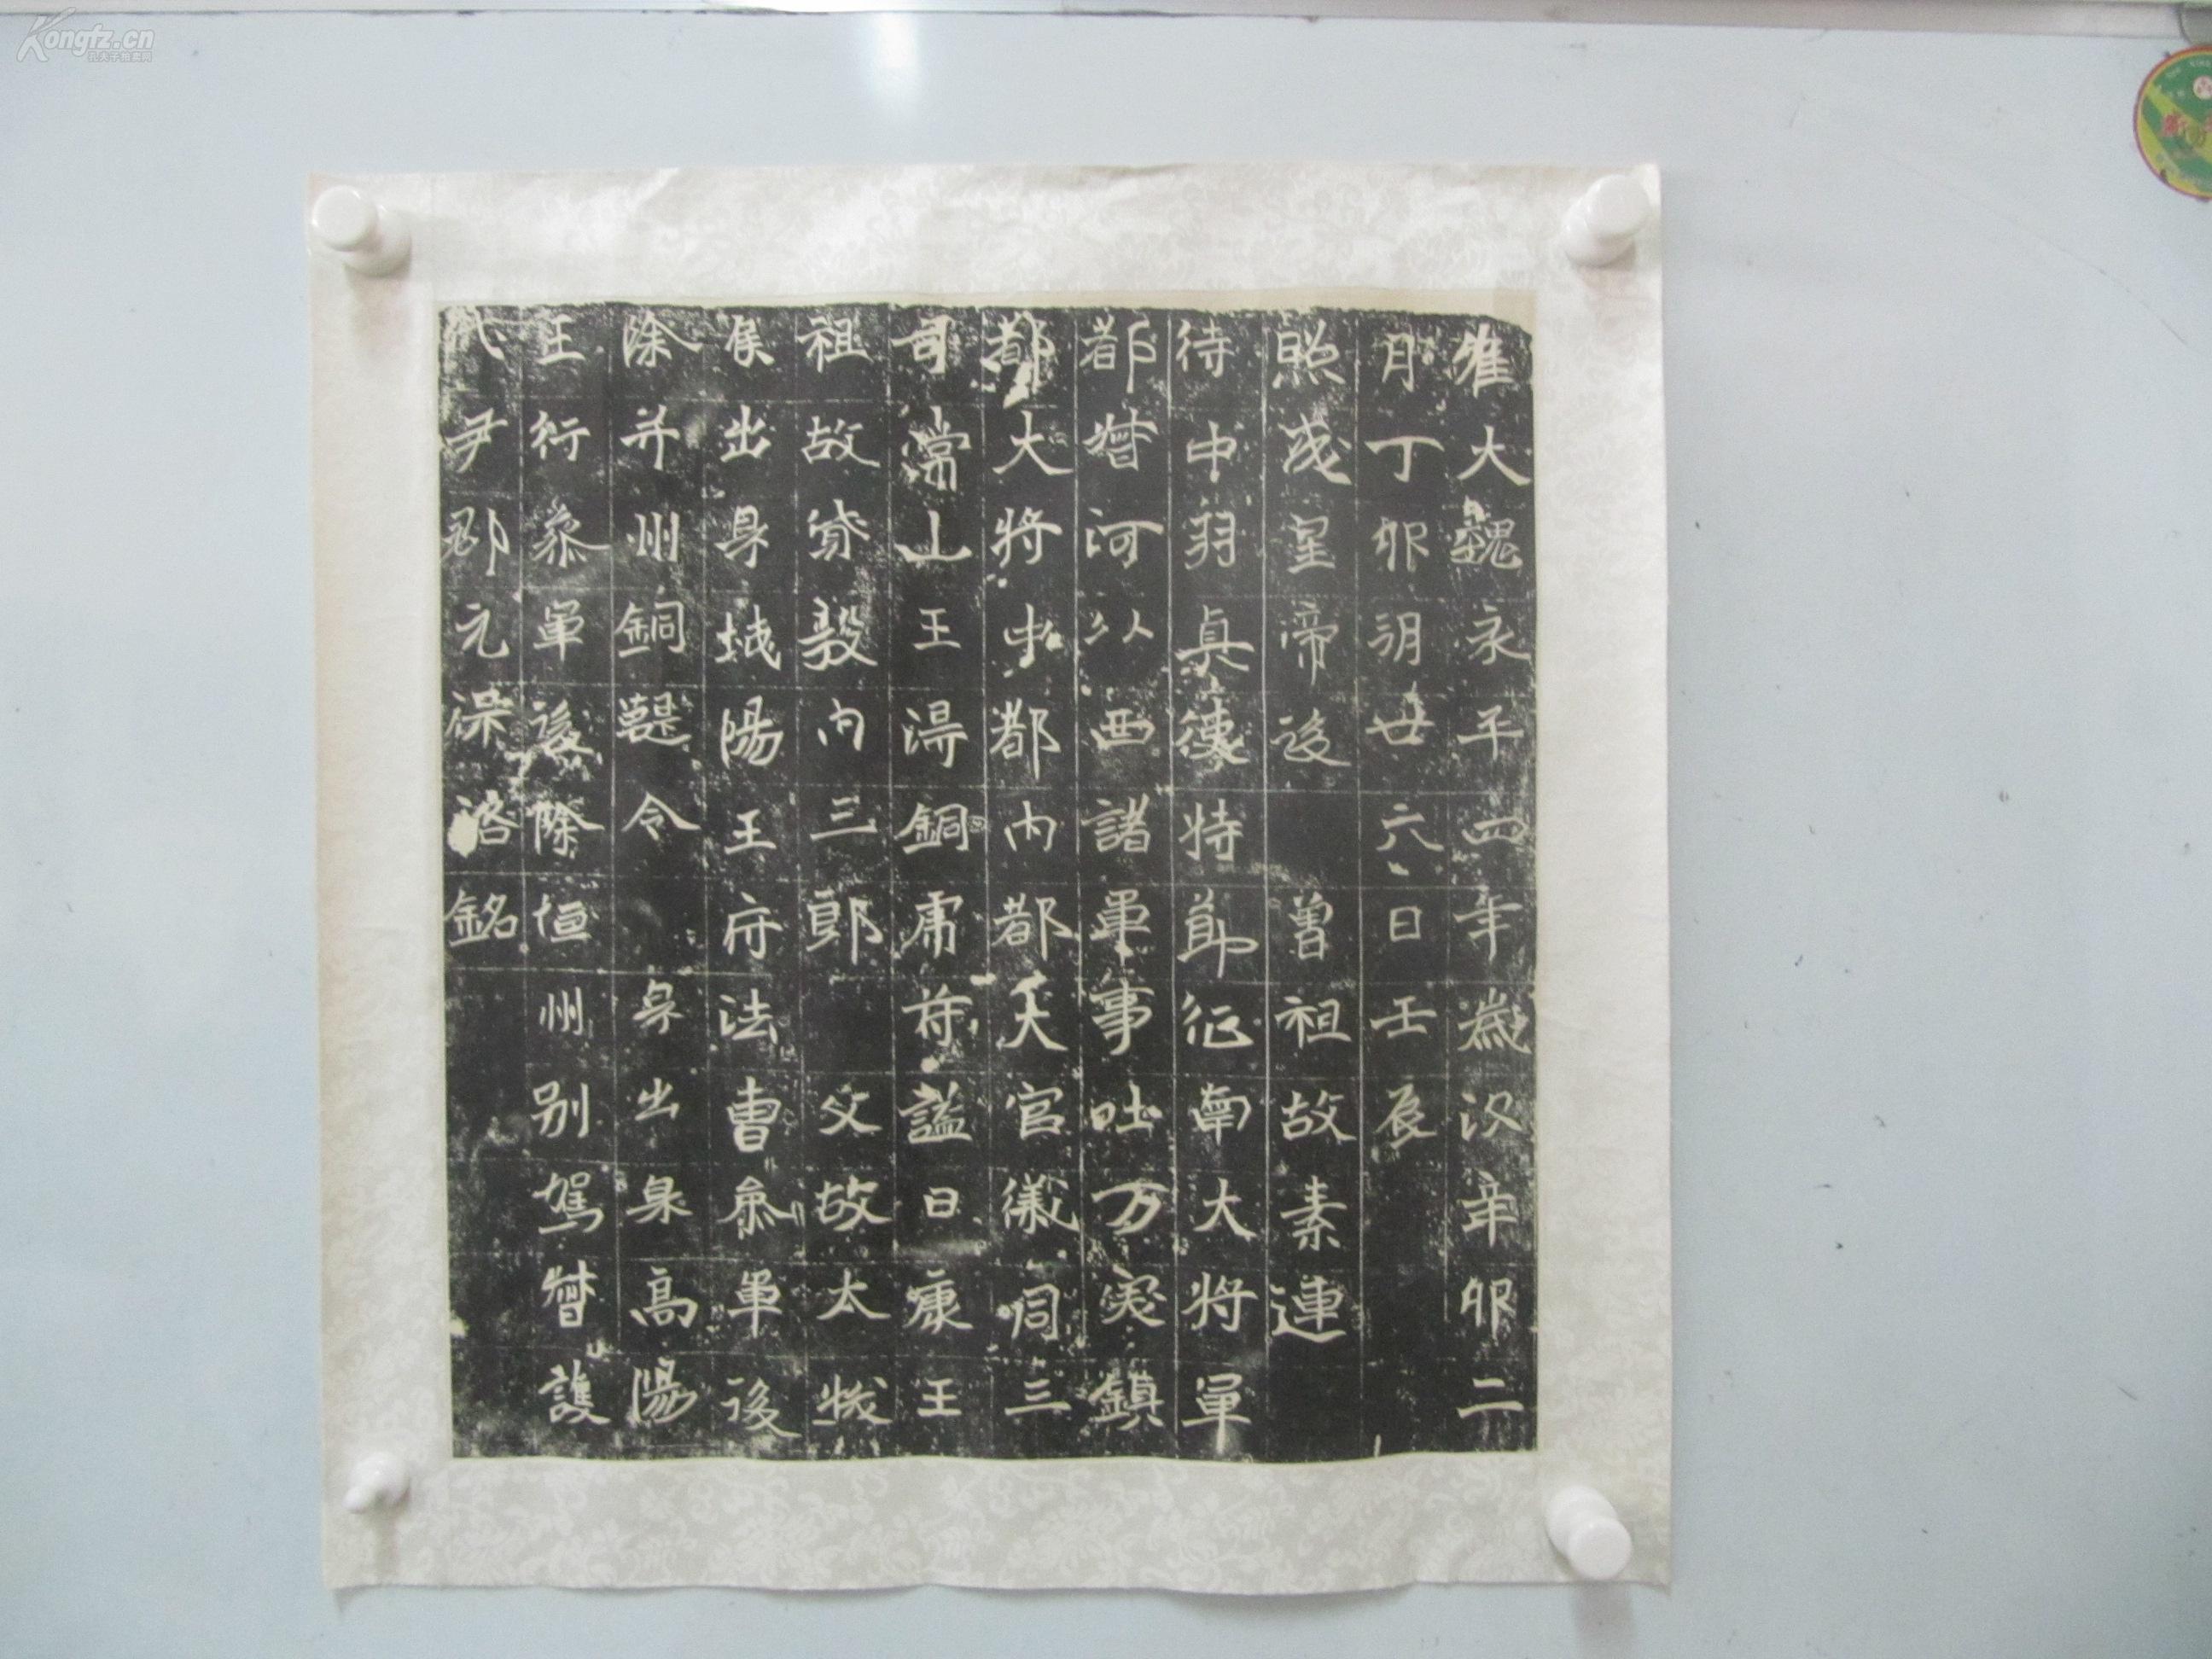 惟大魏永平四年歲次辛卯二
月丁卯朔廿六日壬辰
照成皇帝後 曾祖故素連
侍中羽真使持節征南大將軍
都督河以西諸軍事吐万突鎮
都大將中都內都大官儀同三
司常山王得銅虎符謚曰康王
祖故貸毅內三郎 父故太拔
侯出身城陽王府法曹參軍後
除并州銅鞮令 身出身高陽
王行參軍後除恒州别駕督護
代尹郡元保洛銘
Kongfz.cn